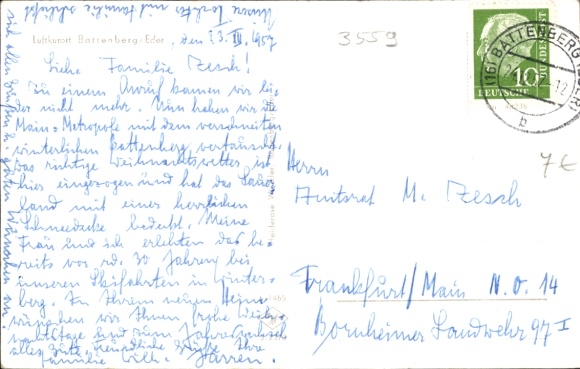 Unsere Tochter und Familie schließt
sich allen Grüßen u. guten Wünschen an.
Luftkurort Battenberg/Eder, den 23. XII. 1957
Liebe Familie Zesch!
Zu einem Anruf kamen wir lei-
der nicht mehr. Nun haben wir die
Main-Metropole mit dem verschneiten
winterlichen Battenberg vertauscht.
Das richtige Weihnachtswetter ist
hier eingezogen und hat das Sauer-
land mit einer herrlichen
Schneedecke bedeckt. Meine
Frau und ich erlebten das be-
reits vor rd. 30 Jahren bei
unseren Skifahrten in Winter-
berg. In Ihrem neuen Heime
wünschen wir Ihnen frohe Weih-
nachtstage und zum Jahreswechsel
alles Gute. Freundliche Grüße Ihre
Familie Wilh.
3559
10
DEUTSCHE
BUNDESPOST
(16) BATTENBERG (EDER)
12
b
7€
Herrn
Amtsrat M. Zesch
Frankfurt/Main N.O. 14
Bornheimer Landwehr 97 I